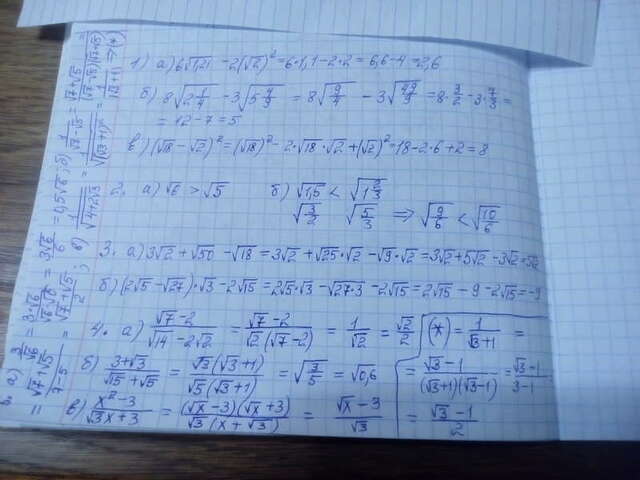 1) а) 6√1,21 - 2(√2)² = 6·1,1 - 2·2 = 6,6 - 4 = 2,6
б) 8√2 1/4 - 3√5 4/9 = 8√9/4 - 3√49/9 = 8·3/2 - 3·7/3 =
= 12 - 7 = 5
в) (√18 - √2)² = (√18)² - 2·√18·√2 + (√2)² = 18 - 2·6 + 2 = 8
2. а) √6 > √5 б) √1,5 < √1 2/3
√3/2 √5/3 ⇒ √9/6 < √10/6
3. а) 3√2 + √50 - √18 = 3√2 + √25·√2 - √9·√2 = 3√2 + 5√2 - 3√2 = 5√2
б) (2√5 - √27)·√3 - 2√15 = 2√5·√3 - √27·3 - 2√15 = 2√15 - 9 - 2√15 = -9
4. а) √7 - 2 / √14 - 2√2 = √7 - 2 / √2(√7 - 2) = 1/√2 = √2/2
б) 3 + √3 / √15 + √5 = √3(√3 + 1) / √5(√3 + 1) = √3/5 = √0,6
в) x² - 3 / √3x + 3 = (√x - 3)(√x + 3) / √3(x + √3) = √x - 3 / √3
(*) = 1 / √3 + 1 =
= √3 - 1 / (√3 + 1)(√3 - 1) = √3 - 1 / 3 - 1
= √3 - 1 / 2
а) 3/√6 = 3·√6 / √6·√6 = 3√6 / 6 = 0,5√6; б) 1 / √7 - √5 = √7 + √5 / (√7 - √5)(√7 + √5) =
= √7 + √5 / 7 - 5 = √7 + √5 / 2; в) 1 / √4 + 2√3 = 1 / √(√3 + 1)² = 1 / √3 + 1 ⇒ (*)